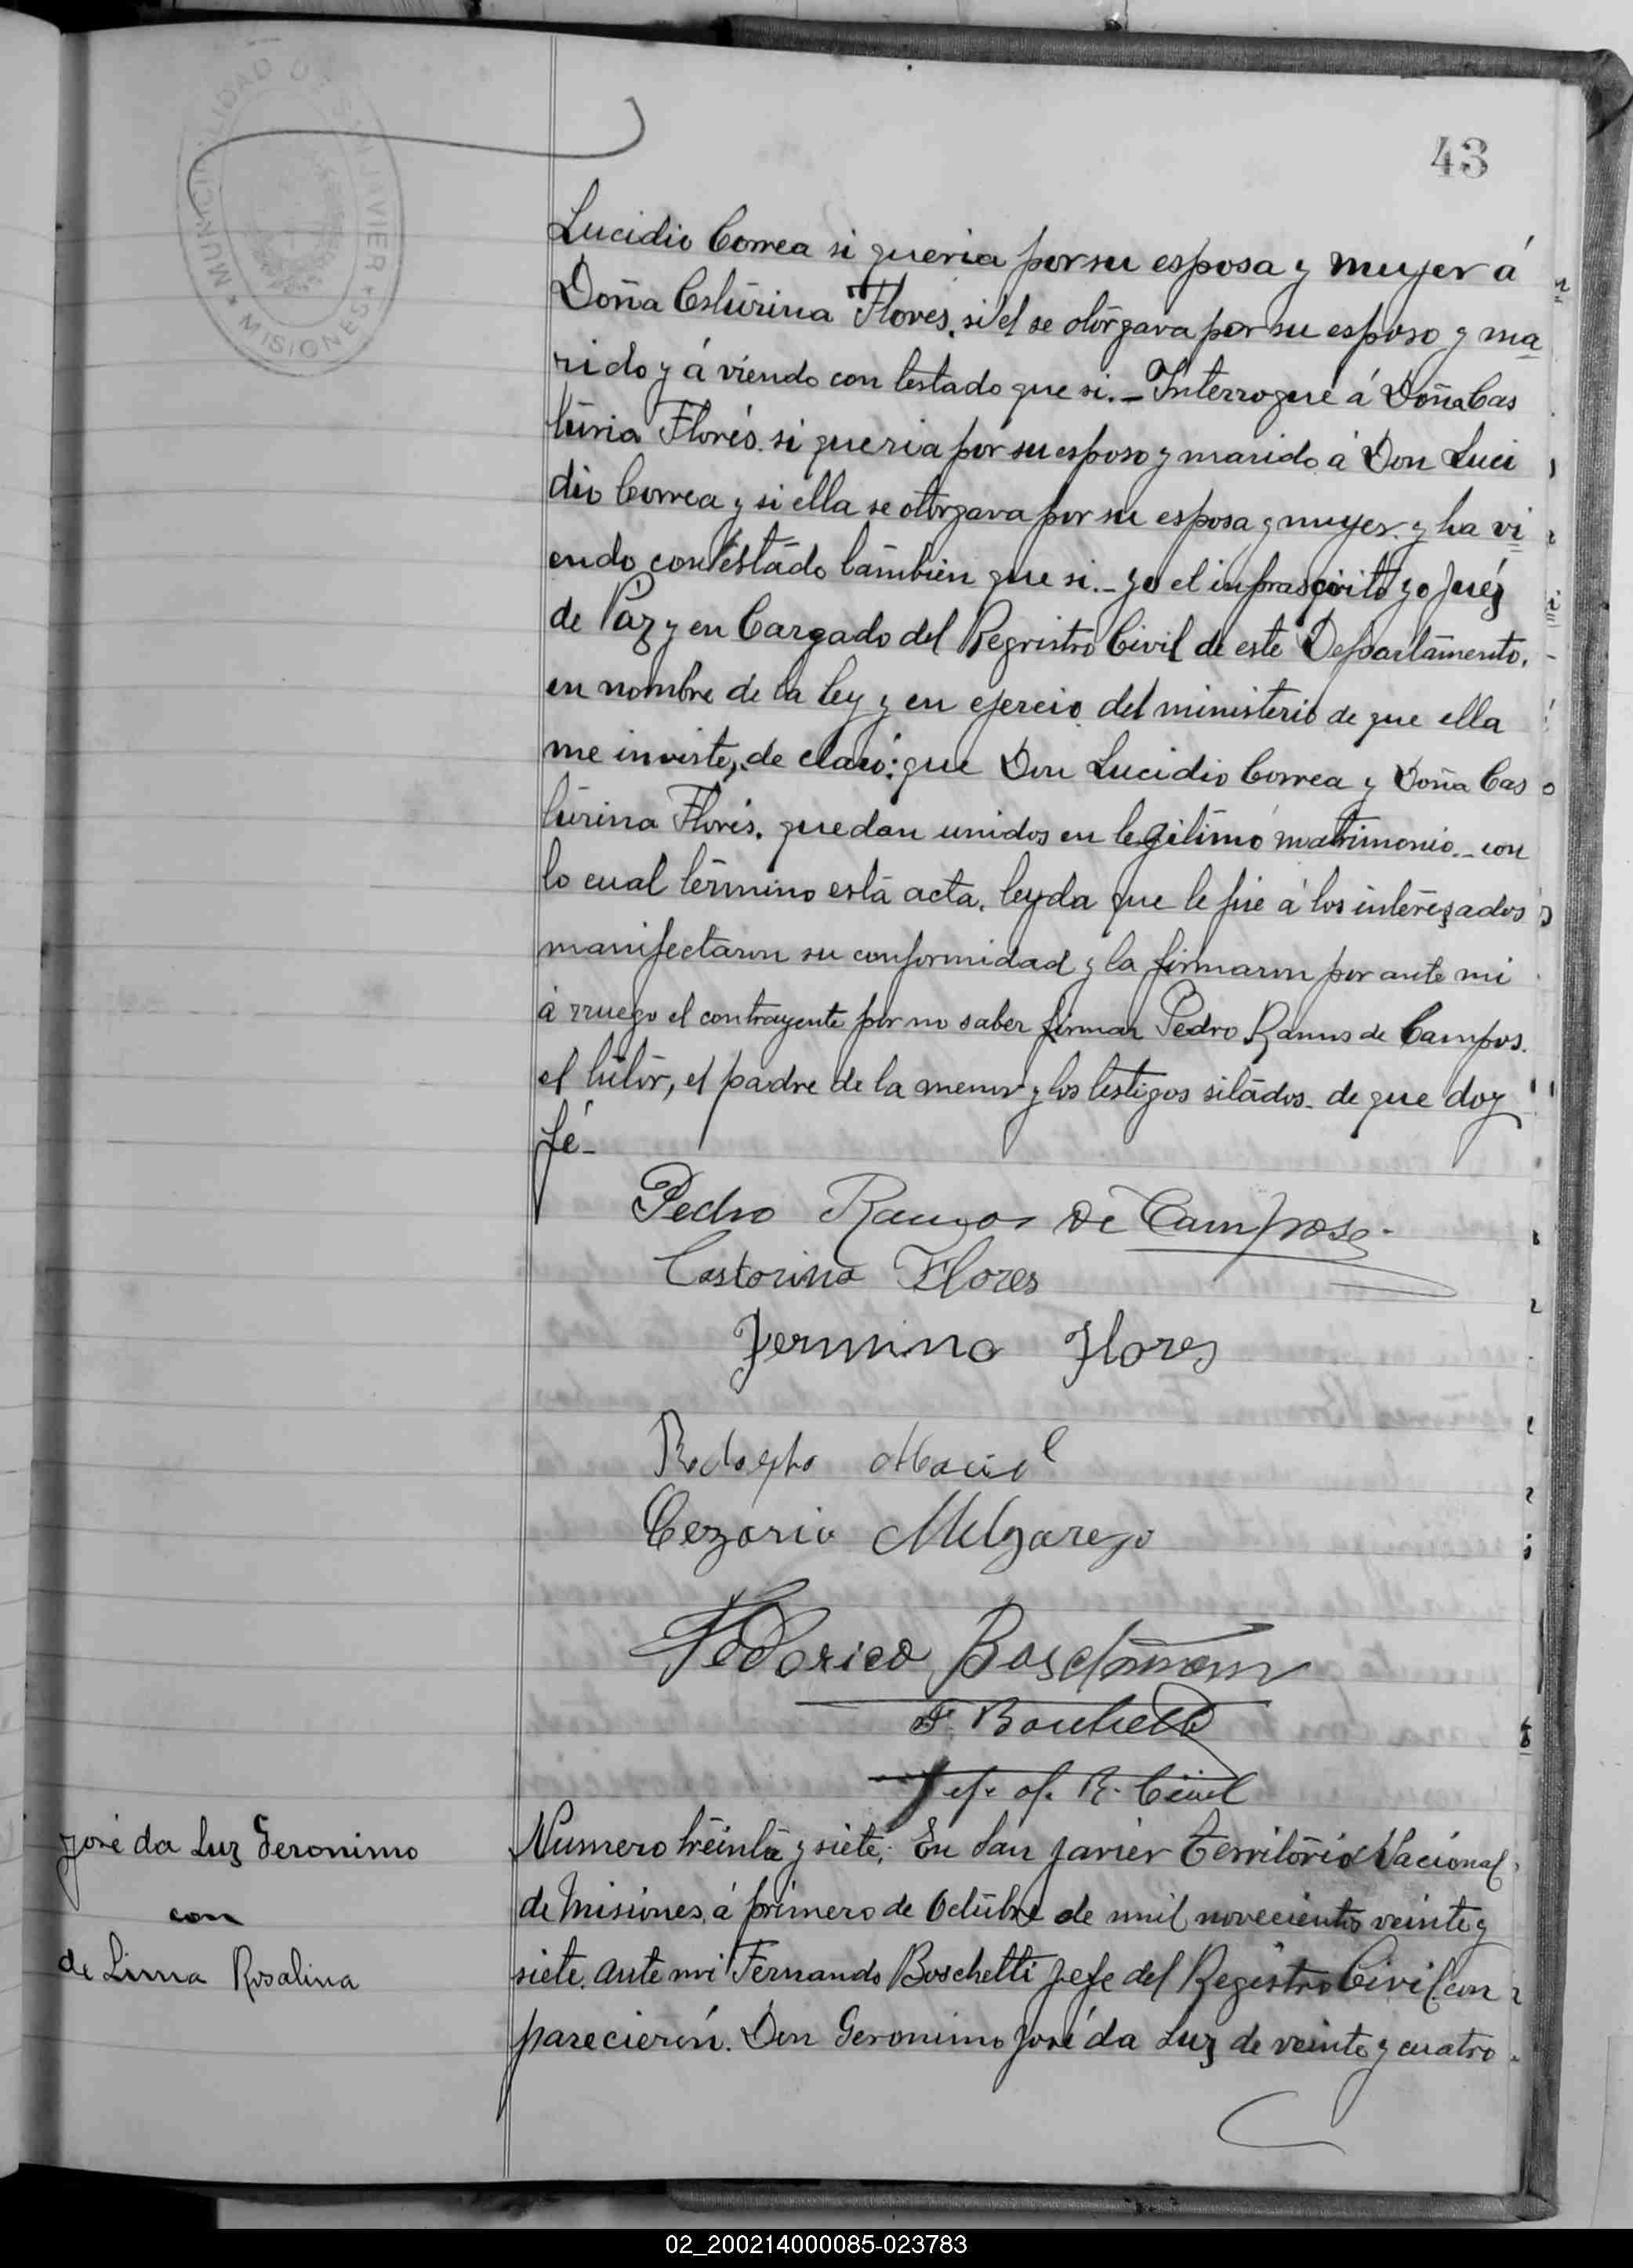 MUNICIPALIDAD DE SAN JAVIER
MISIONES
43
Lucidio Correa si queria por su esposa y muyer á
Doña Cslurina Flores, si él se otorgava por su esposo y ma
rido y á viendo con testado que si. - Interrogué á Doña Cas
turia Florés. si queria por su esposo y marido á Don Luci
dio Correa y si ella se otorgava por su esposa y muyer y ha vi
endo contestado tambien que si. - yo el infrascrito yo Juéz
de Páz y en Cargado del Regristro Civil de este Departamento.
en nombre de la ley y en ejercio del ministerio de que ella
me inviste, de claró: que Don Lucidio Correa y Doña Cas
turina Florés. quedan unidos en legitimo matrimonio. - con
lo cual termino esta acta. leyda que le fue á los interesados
manifectaron su conformidad y la firmaron por ante mi
á rruego el contrayente por no saber firmar Pedro Ramos de Campos.
el tutor, el padre de la menor y los testigos sitados. de que doy
fé -
Pedro Ramos De Campos
Castorina Flores
Fermino Flores
Rodolpho Maciel
Cezario Melgarejo
Federico
F. Boschetti
Jefe of. R. Civil
José da Luz Geronimo
con
de Lima Rosalina
Numero treinta y siete; En San Javier Territorio Nacional
de Misiones, á primero de Octubre de mil novecientos veinte y
siete. ante mi Fernando Boschetti Jefe del Registro Civil. con
parecierón. Don Geronimo José da Luz de veinte y cuatro
02_200214000085-023783